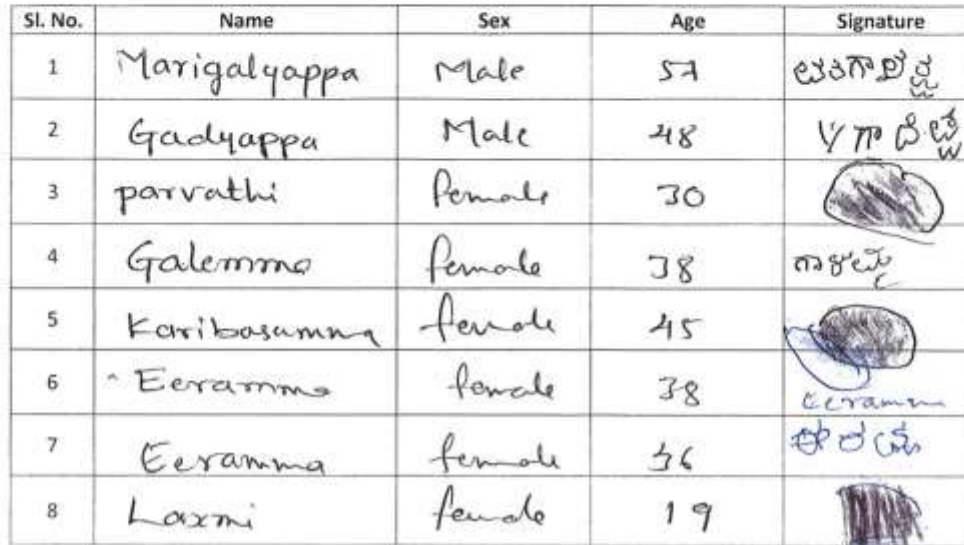 Sl. No. Name Sex Age Signature
1 Marigalyappa Male 57
2 Gadyappa Male 48
3 parvathi female 30
4 Galemma female 38
5 Karibasamma female 45
6 Eeramma female 38 Eeramma
7 Eeramma female 36
8 Laxmi female 19